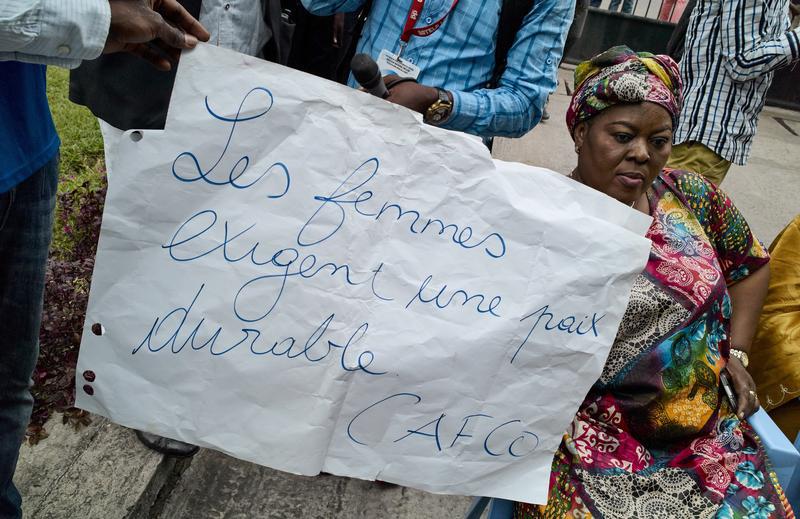 Les femmes
exigent une paix
durable
CAFCO